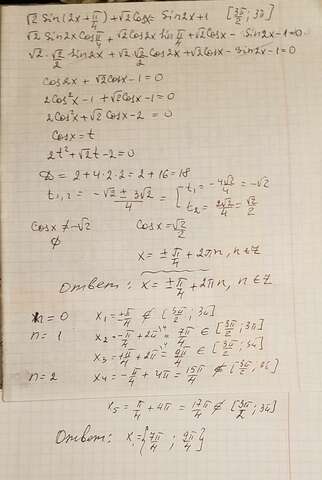 √2 Sin(2x + π/4) + √2 Cosx = Sin2x + 1 [3π/2 ; 3π]
√2 Sin2x Cos π/4 + √2 Cos2x Sin π/4 + √2 Cosx - Sin2x - 1 = 0
√2 · √2/2 Sin2x + √2 · √2/2 Cos2x + √2 Cosx - Sin2x - 1 = 0
Cos2x + √2 Cosx - 1 = 0
2Cos²x - 1 + √2 Cosx - 1 = 0
2Cos²x + √2 Cosx - 2 = 0
Cosx = t
2t² + √2t - 2 = 0
D = 2 + 4·2·2 = 2 + 16 = 18
t₁,₂ = (-√2 ± 3√2)/4 = [ t₁ = -4√2/4 = -√2
t₂ = 2√2/4 = √2/2
Cosx ≠ -√2 Cosx = √2/2
∅ x = ± π/4 + 2πn, n ∈ Z
Ответ: x = ± π/4 + 2πn, n ∈ Z
n = 0 x₁ = ± π/4 ∉ [3π/2 ; 3π]
n = 1 x₂ = -π/4 + 2π = 7π/4 ∈ [3π/2 ; 3π]
x₃ = +π/4 + 2π = 9π/4 ∈ [3π/2 ; 3π]
n = 2 x₄ = -π/4 + 4π = 15π/4 ∉ [3π/2 ; 3π]
x₅ = π/4 + 4π = 17π/4 ∉ [3π/2 ; 3π]
Ответ: x = {7π/4 ; 9π/4}